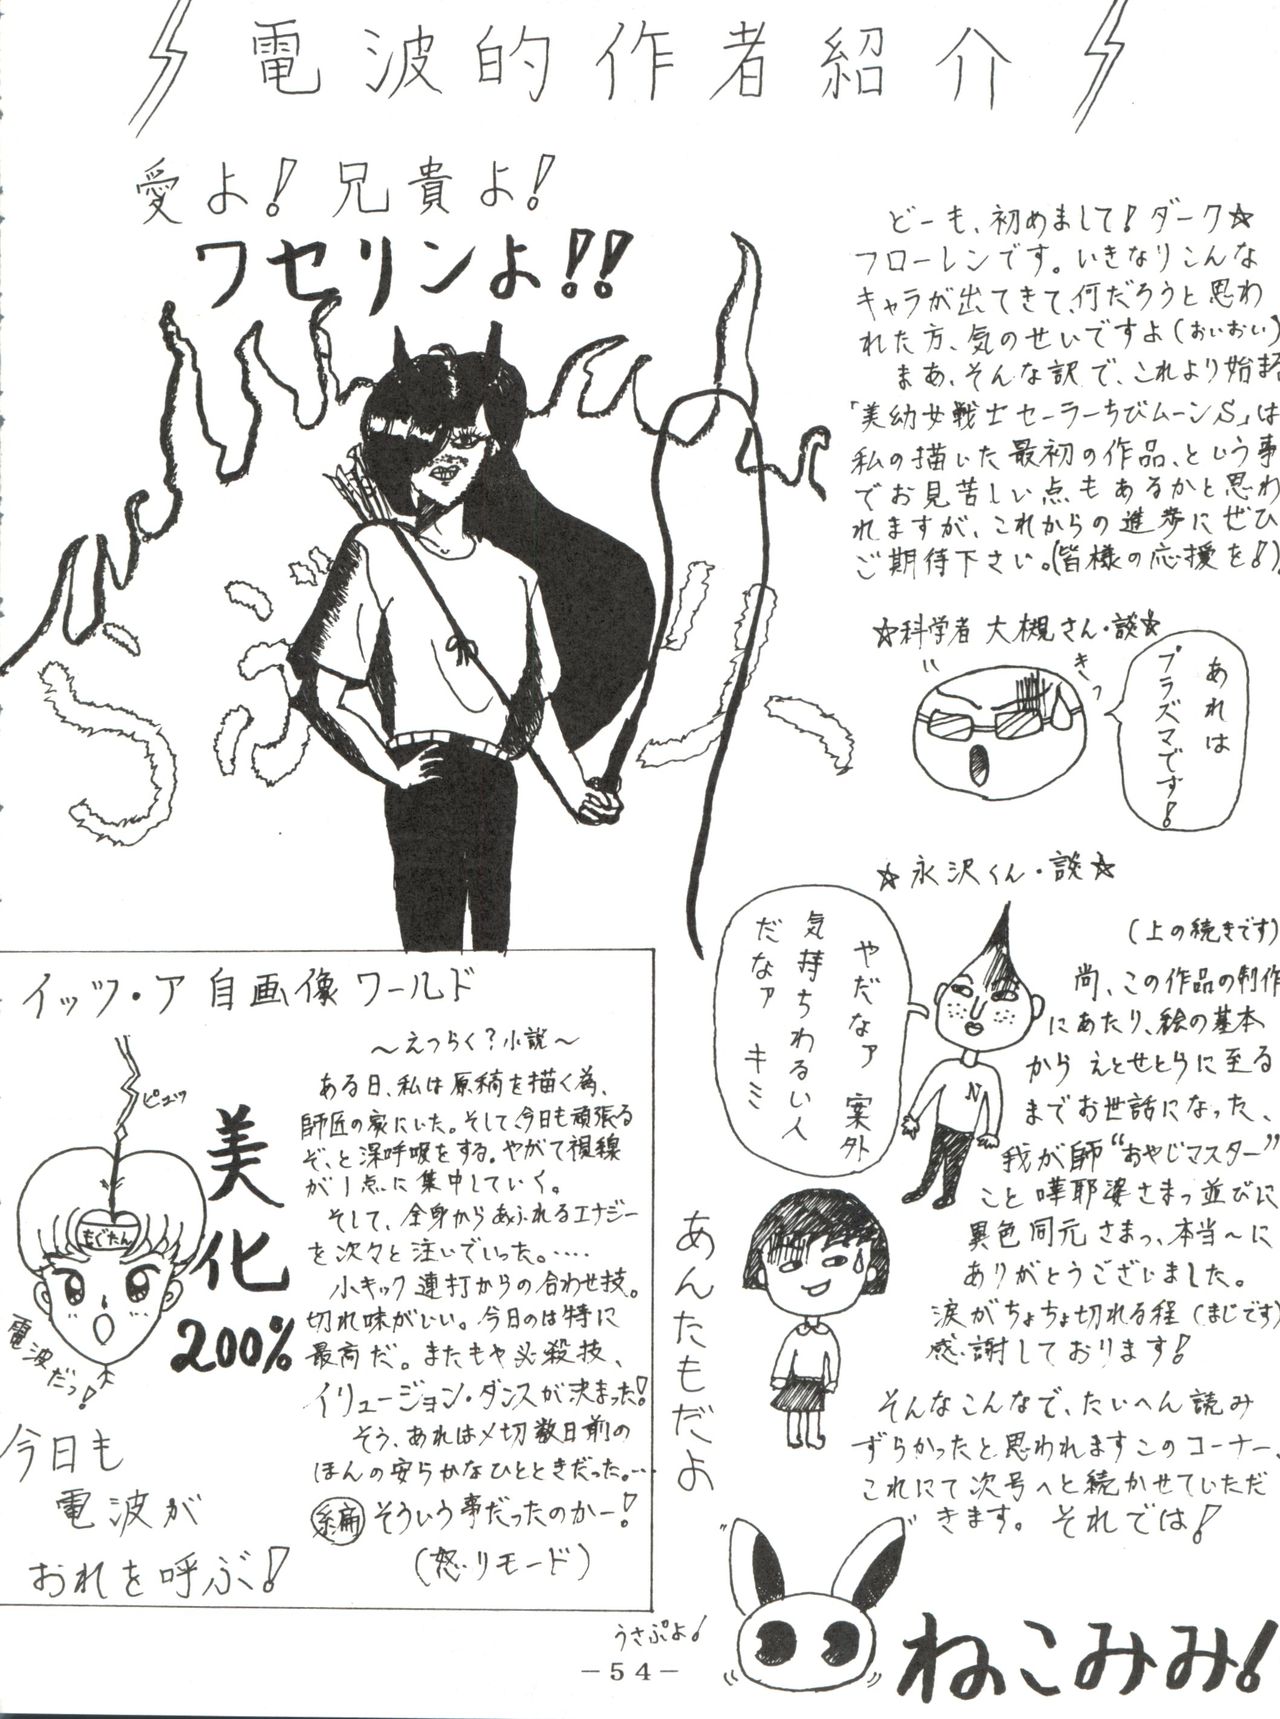 電波的作者紹介
愛よ！兄貴よ！
ワセリンよ!!
どーも、初めまして！ダーク☆
フローレンです。いきなりこんな
キャラが出てきて、何だろうと思わ
れた方、気のせいですよ（おいおい）
まあ、そんな訳で、これより始まる
「美幼女戦士セーラーちびムーンS」は
私の描いた最初の作品、という事
でお見苦しい点もあるかと思わ
れますが、これからの進歩にぜひ
ご期待下さい。（皆様の応援を！）。
☆科学者 大槻さん・談☆
きっ
あれは
プラズマです！
☆永沢くん・談☆
やだなァ 案外
気持ちわるい人
だなァ キミ
N
（上の続きです）
尚、この作品の制作
にあたり、絵の基本
から えとせとらに至る
までお世話になった、
我が師“おやじマスター”
こと 嘩耶婆さまっ並びに
異色同元さまっ、本当〜に
ありがとうございました。
涙がちょちょ切れる程（まじです）
感謝しております！
あんたもだよ
そんなこんなで、たいへん読み
ずらかったと思われますこのコーナー、
これにて次号へと続かせていただ
きます。それでは！
イッツ・ア 自画像ワールド
ピュッ
美化
200%
もぐたん
電波だっ！
今日も
電波が
おれを呼ぶ！
〜えつらく？小説〜
ある日、私は原稿を描く為、
師匠の家にいた。そして、今日も頑張る
ぞ、と深呼吸をする。やがて視線
が1点に集中していく。
そして、全身からあふれるエナジー
を次々と注いでいった。‥‥
小キック連打からの合わせ技。
切れ味がいい。今日のは特に
最高だ。またもや必殺技、
イリュージョン・ダンスが決まった！
そう、あれは〆切数日前の
ほんの安らかなひとときだった。…
編 そういう事だったのかー！
（怒りモード）
うさぷよ！
ねこみみ！
－54－